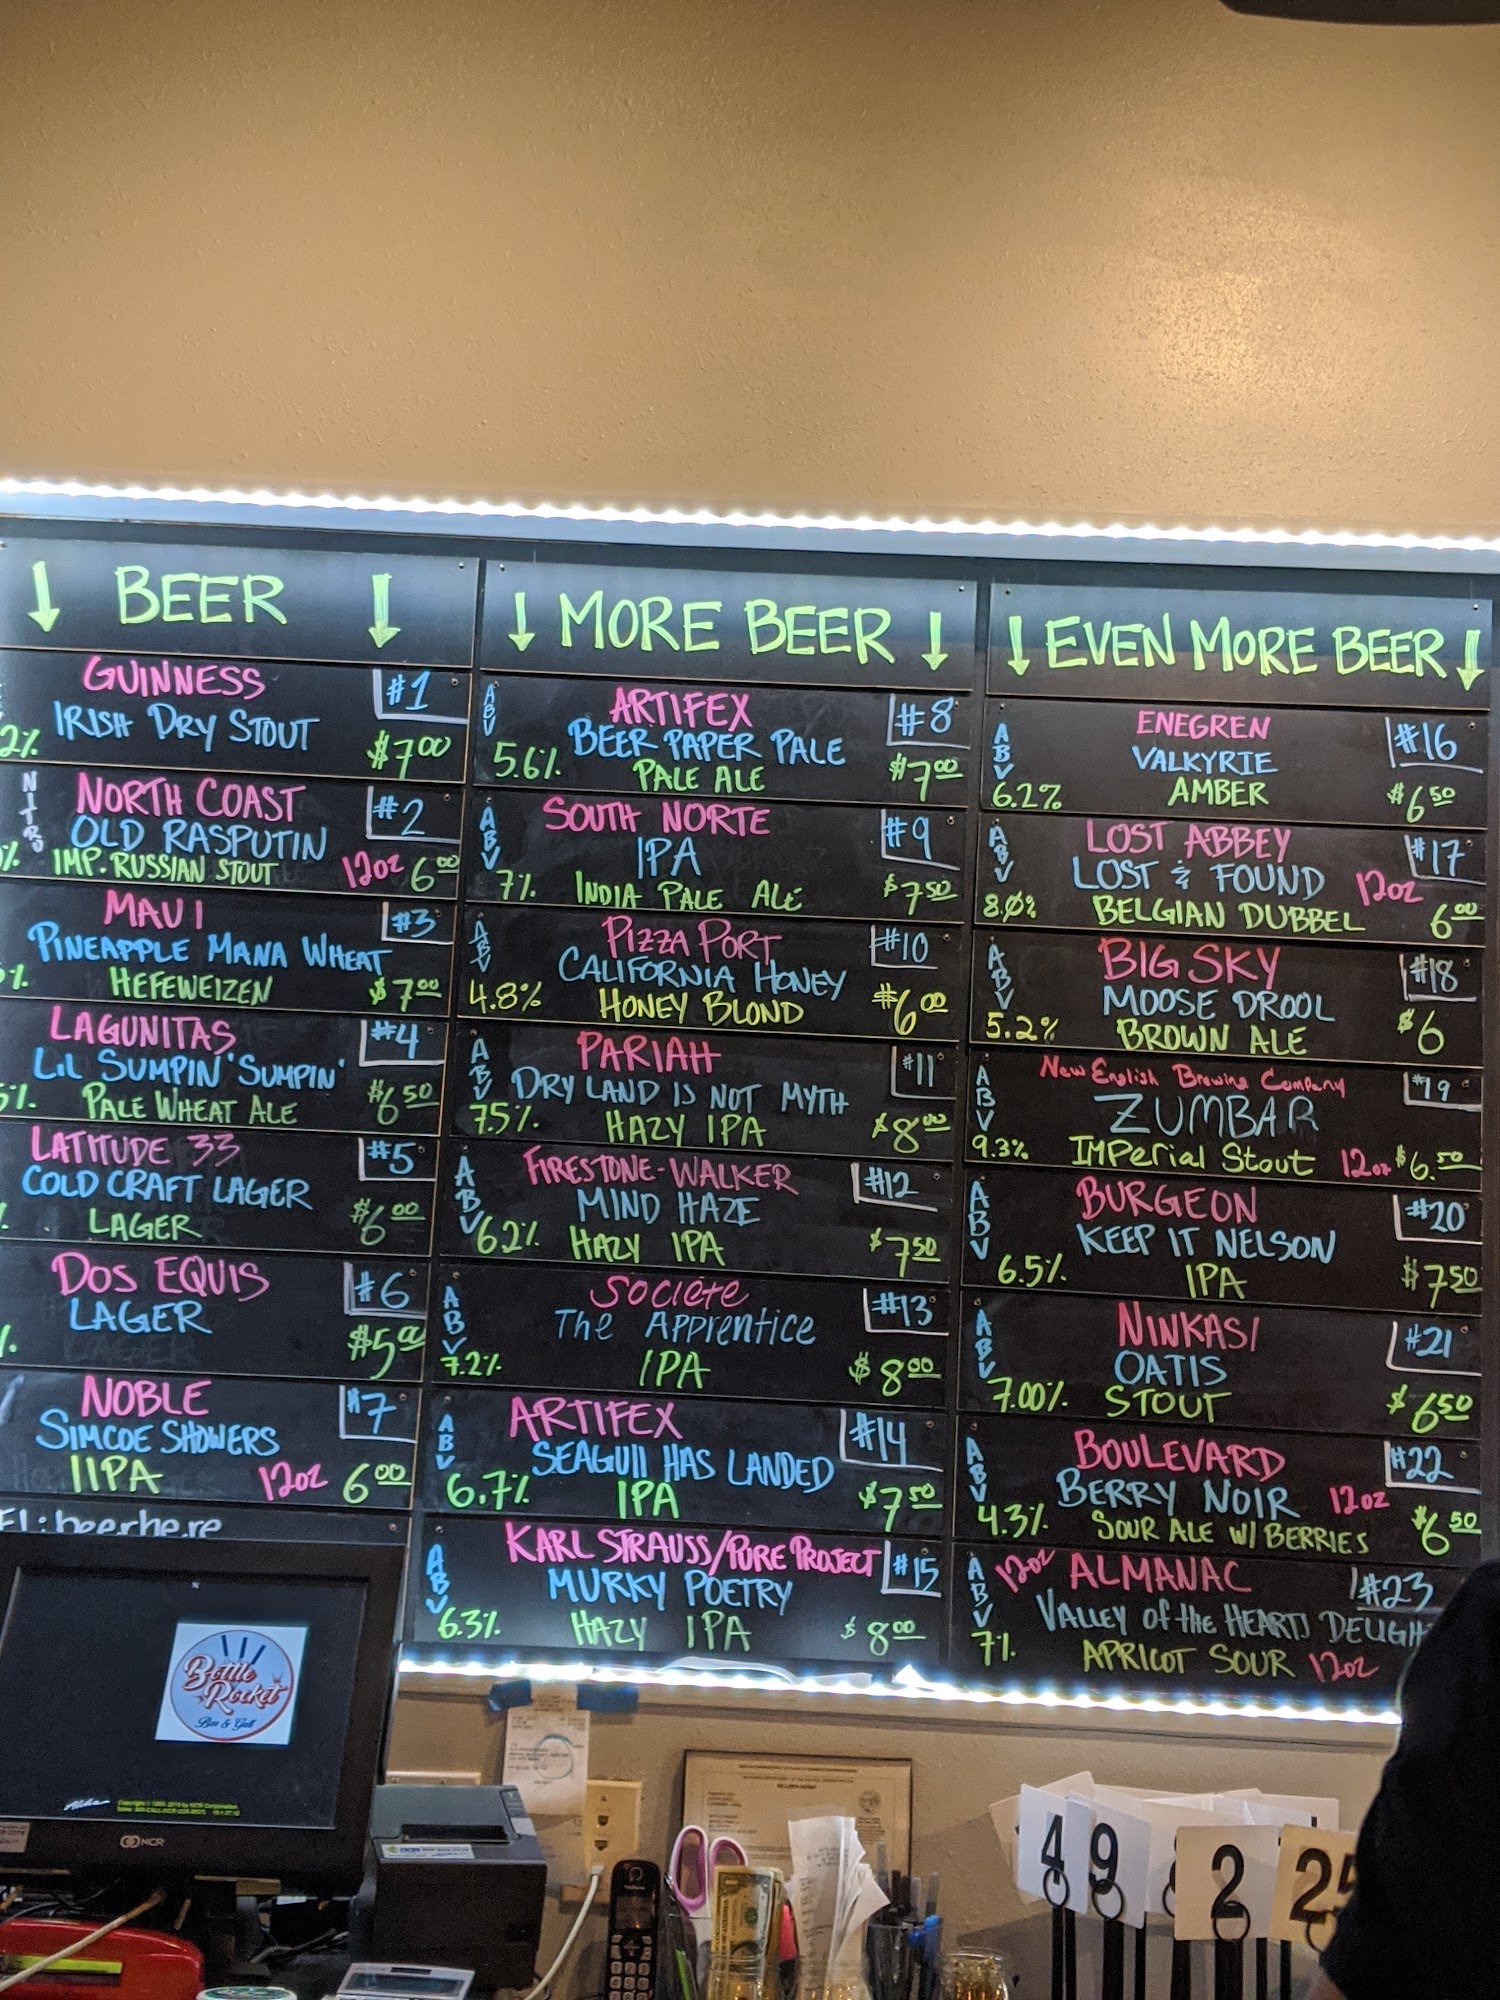 BEER
GUINNESS #1
IRISH DRY STOUT
2% $7.00
NITRO NORTH COAST #2
OLD RASPUTIN
% IMP. RUSSIAN STOUT 12oz 6.00
MAUI #3
PINEAPPLE MANA WHEAT
% HEFEWEIZEN $7.00
LAGUNITAS #4
LIL SUMPIN' SUMPIN'
5% PALE WHEAT ALE $6.50
LATITUDE 33 #5
COLD CRAFT LAGER
LAGER $6.00
DOS EQUIS #6
LAGER
% $5.00
NOBLE #7
SIMCOE SHOWERS
IIPA 12oz 6.00
: beerhere
MORE BEER
ABV ARTIFEX #8
BEER PAPER PALE
5.6% PALE ALE $7.00
ABV SOUTH NORTE #9
IPA
7% INDIA PALE ALE $7.50
ABV PIZZA PORT #10
CALIFORNIA HONEY
4.8% HONEY BLOND $6.00
ABV PARIAH #11
DRY LAND IS NOT MYTH
7.5% HAZY IPA $8.00
ABV FIRESTONE-WALKER #12
MIND HAZE
6.2% HAZY IPA $7.50
ABV Societe #13
The Apprentice
7.2% IPA $8.00
ABV ARTIFEX #14
SEAGUll HAS LANDED
6.7% IPA $7.50
ABV KARL STRAUSS/PURE PROJECT #15
MURKY POETRY
6.3% HAZY IPA $8.00
EVEN MORE BEER
ABV ENEGREN #16
VALKYRIE
6.2% AMBER $6.50
ABV LOST ABBEY #17
LOST & FOUND 12oz
8.0% BELGIAN DUBBEL 6.00
ABV BIG SKY #18
MOOSE DROOL
5.2% BROWN ALE $6
ABV New English Brewing Company #19
ZUMBAR
9.3% IMPerial Stout 12oz $6.50
ABV BURGEON #20
KEEP IT NELSON
6.5% IPA $7.50
ABV NINKASI #21
OATIS
7.00% STOUT $6.50
ABV BOULEVARD #22
BERRY NOIR 12oz
4.3% SOUR ALE W/ BERRIES $6.50
ABV 12oz ALMANAC #23
VALLEY of the HEARTS DELIGH
7% APRICOT SOUR 12oz
Bottle
Rocket
Bar & Grill
NCR
4 9 2 25